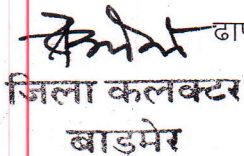 ढा
जिला कलक्टर
बाड़मेर